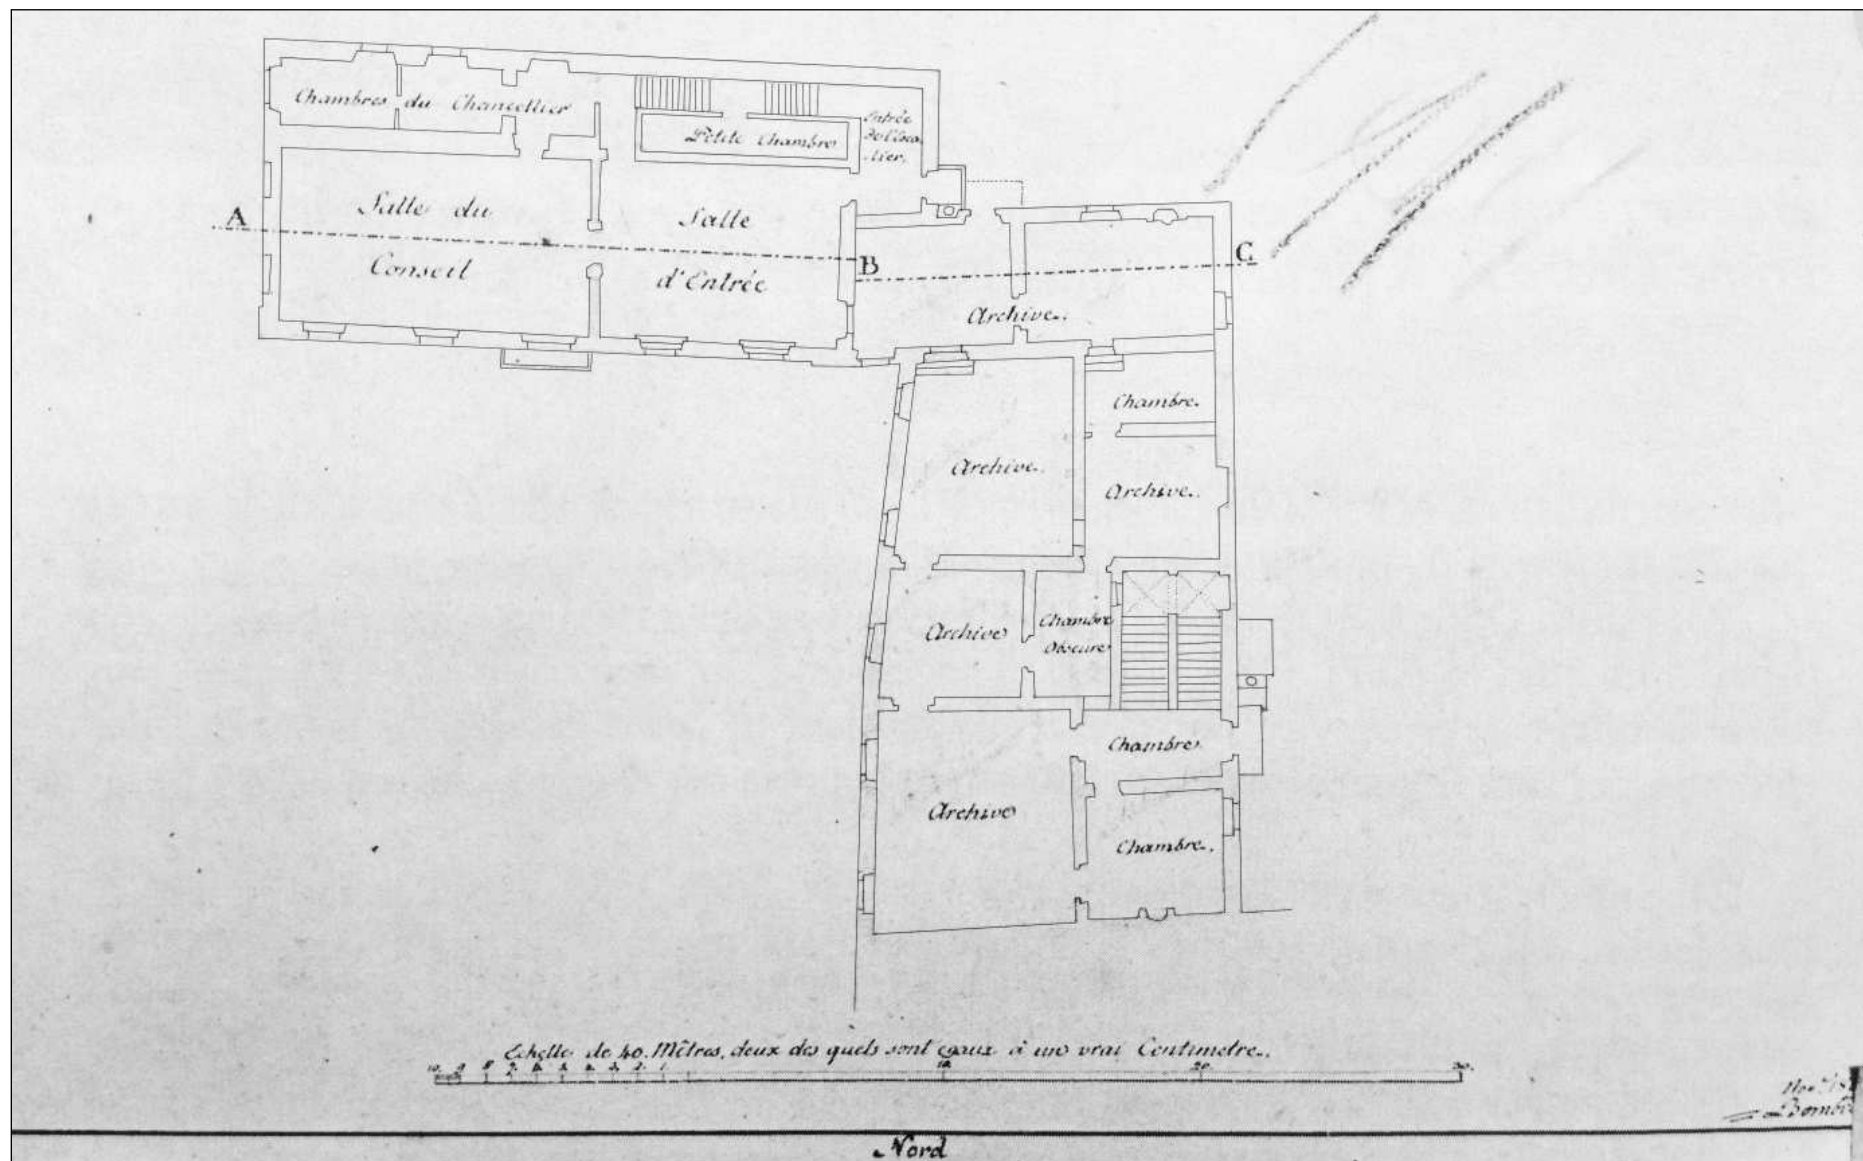 Chambres du Chancellier
Petite Chambre
Entrée
de l'Esca
lier.
Salle du
Conseil
Salle
d'Entrée
A
B
C
Archive.
Chambre.
Archive.
Archive.
Archive
Chambre
Obscure
Chambre
Archive
Chambre.
Echelle de 40. Mêtres, deux des quels sont egaux à un vrai Centimetre.
10. 9 8 7. 6. 5 4. 3. 2. 1. 10. 20. 30.
Nord